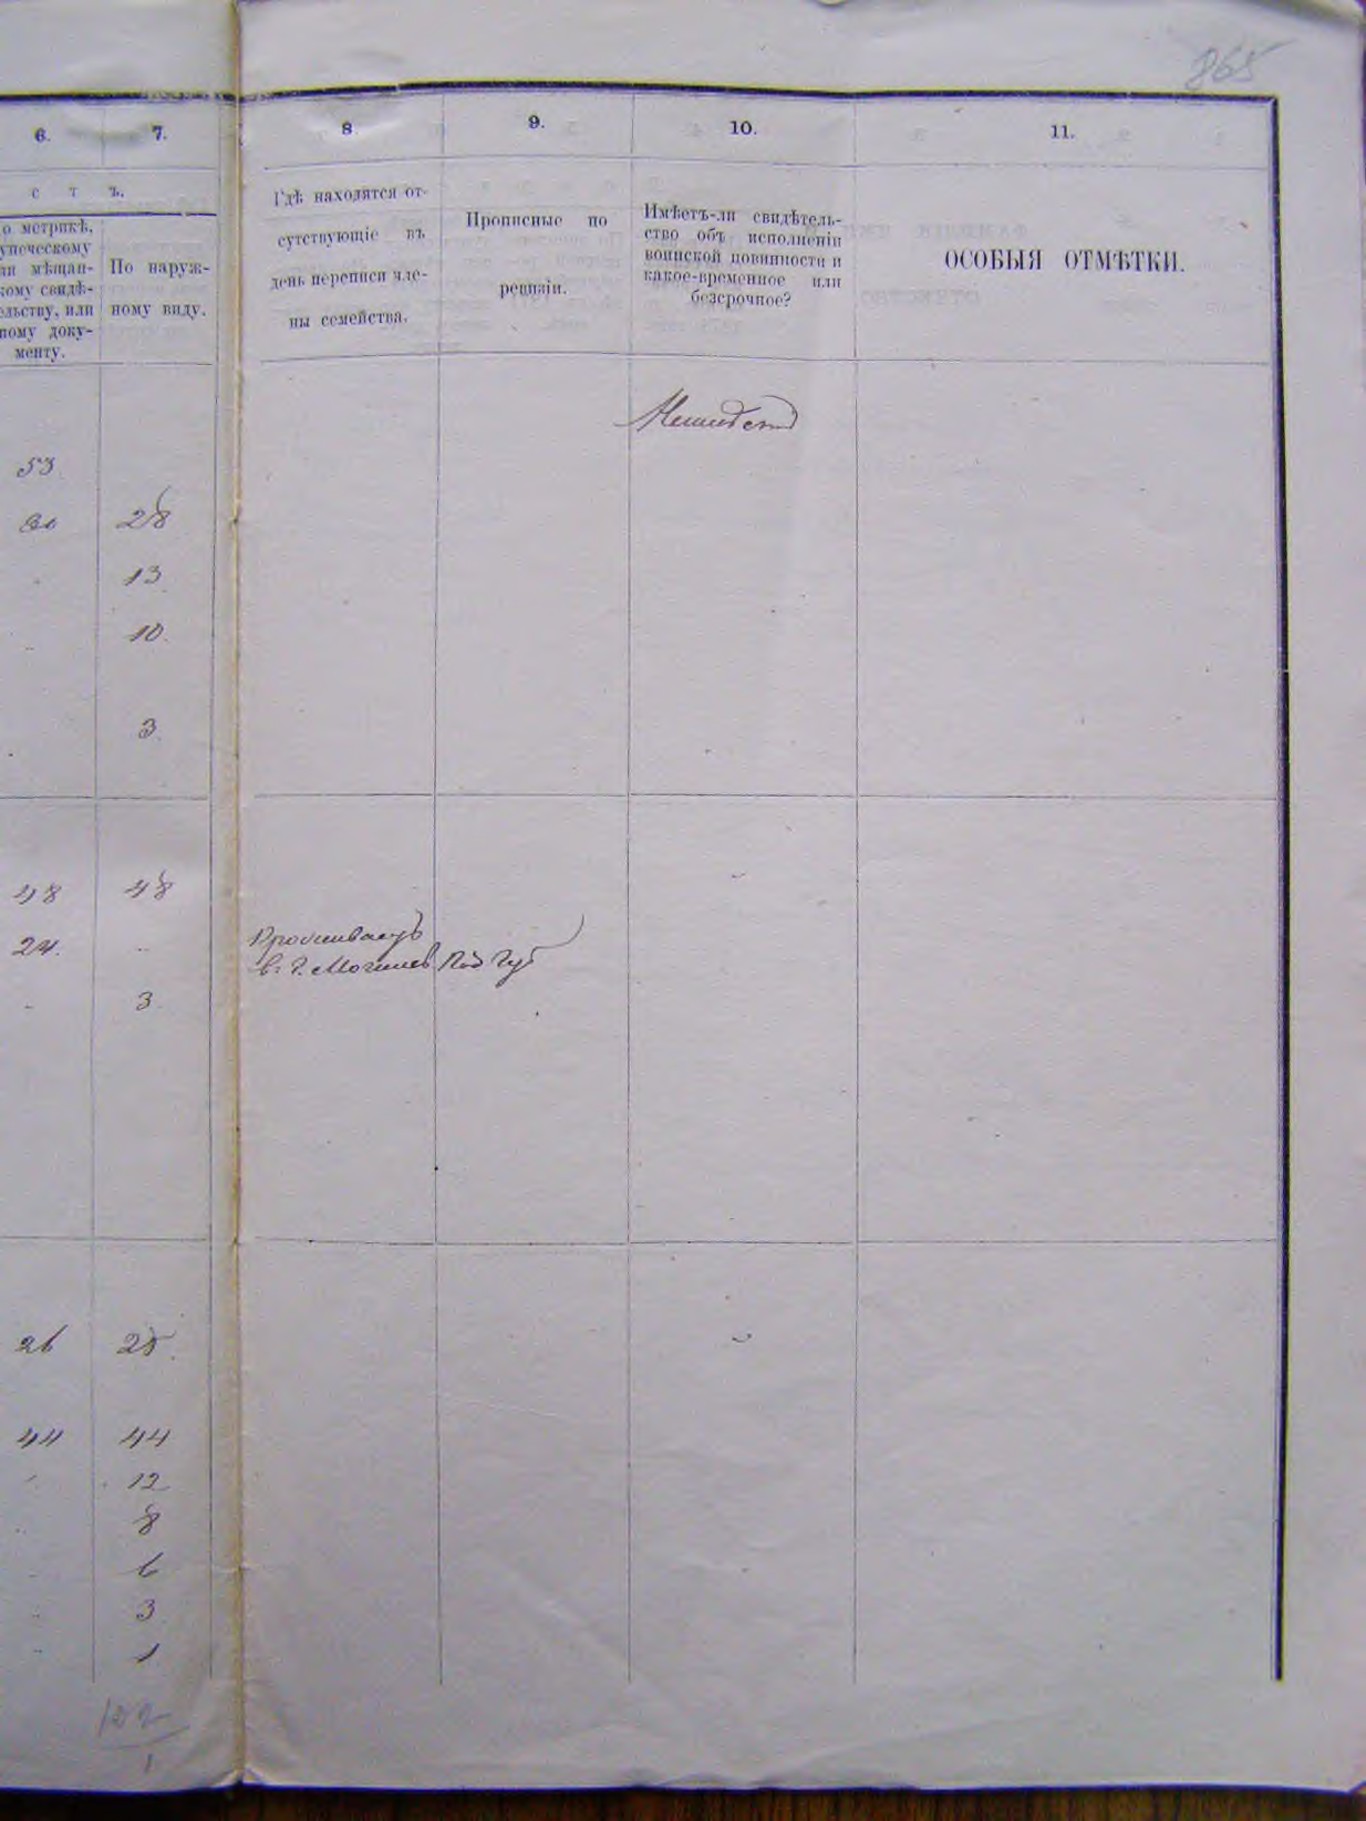 865
6. 7. 8 9. 10. 11.
с т ъ.
о метрикѣ,
упеческому
ли мѣщан-
кому свидѣ-
ельству, или
ному доку-
менту.
По наруж-
ному виду.
Гдѣ находятся от-
сутствующіе въ
день переписи чле-
ны семейства.
Прописные по
ревизіи.
Имѣетъ-ли свидѣтель-
ство объ исполненіи
воинской повинности и
какое-временное или
безсрочное?
ОСОБЫЯ ОТМѢТКИ.
53
28
13
10
3
48 48
24. Проживаетъ
в. г. Могилев Под Губ
3
26 25
44 44
12
8
6
3
1
122
1